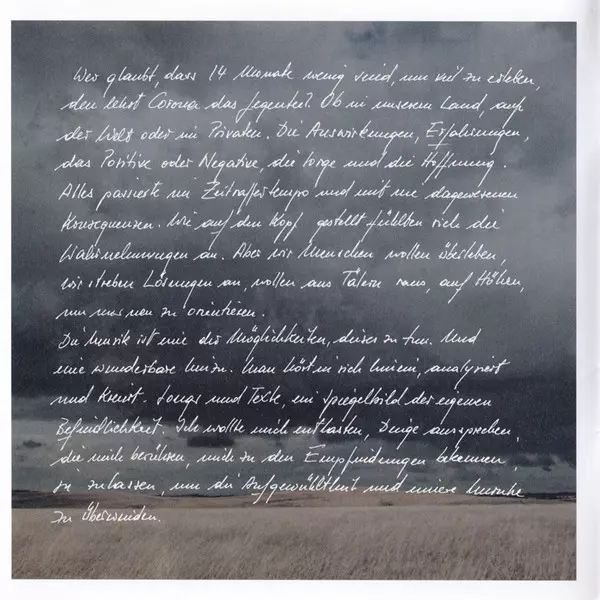 Wer glaubt, dass 14 Monate wenig sind, um viel zu erleben,
den lehrt Corona das Gegenteil. Ob in unserem Land, auf
der Welt oder im Privaten. Die Auswirkungen, Erfahrungen,
das Positive oder Negative, die Sorge und die Hoffnung.
Alles passierte im Zeitraffertempo und mit nie dagewesenen
Konsequenzen. Wie auf den Kopf gestellt fühlten sich die
Wahrnehmungen an. Aber wir Menschen wollen überleben,
wir streben Lösungen an, wollen aus Tälern raus, auf Höhen,
um uns neu zu orientieren.
Die Musik ist eine der Möglichkeiten, dieses zu tun. Und
eine wunderbare hinzu. Man hört in sich hinein, analysiert
und kreiert. Songs und Texte, ein Spiegelbild der eigenen
Befindlichkeit. Ich wollte mich entlasten, Dinge aussprechen,
die mich berühren, mich zu den Empfindungen bekennen,
sie zulassen, um die Aufgewühltheit und innere Unruhe
zu überwinden.